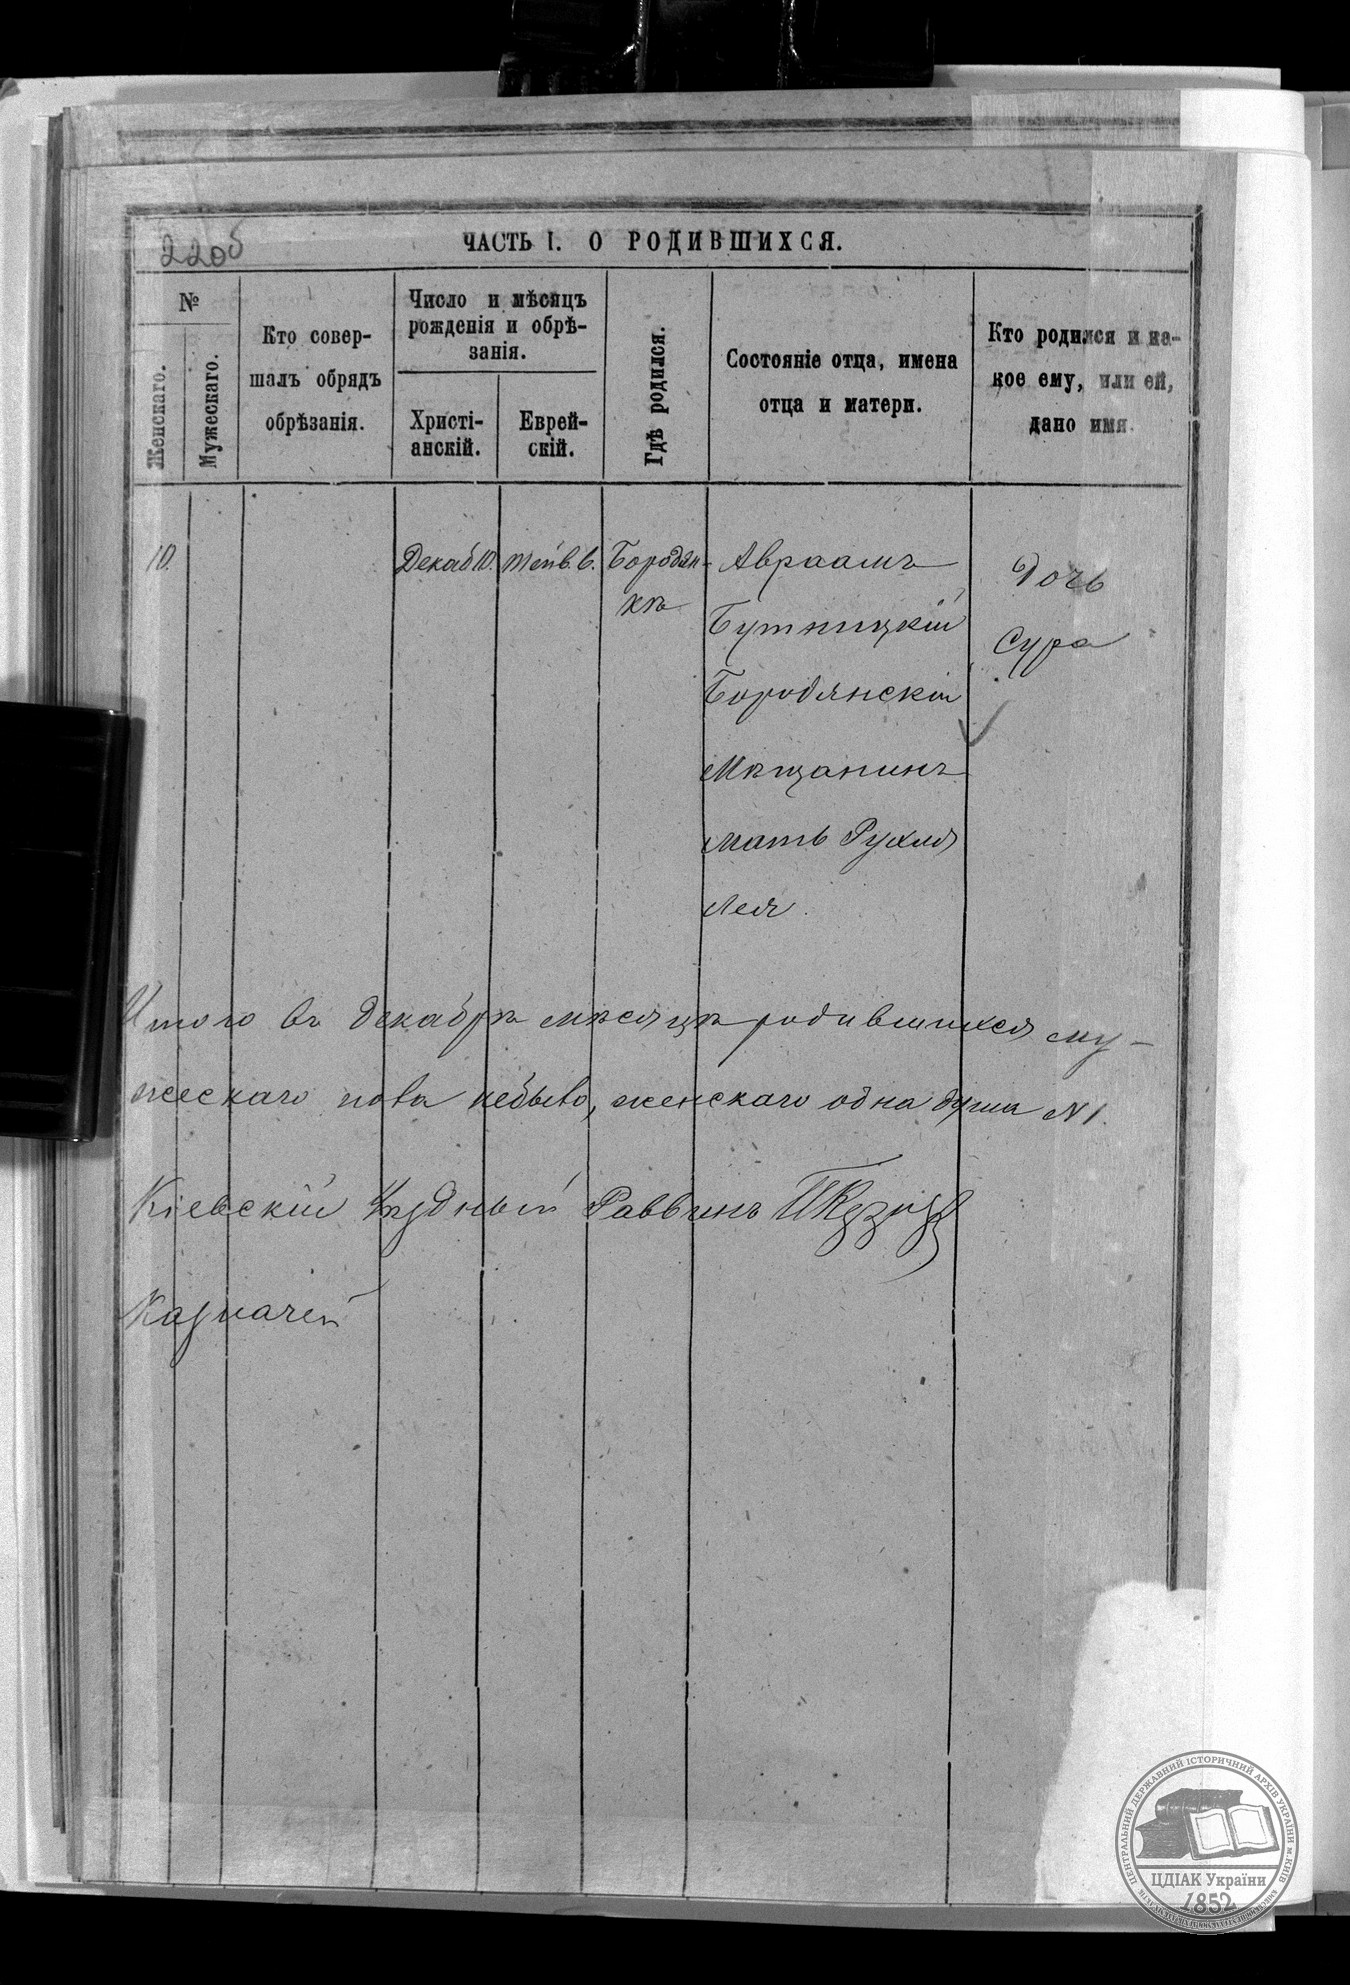 220б
ЧАСТЬ I. О РОДИВШИХСЯ.
№
Женскаго.
Мужескаго.
Кто совер-
шалъ обрядъ
обрѣзанія.
Число и мѣсяцъ
рожденія и обрѣ-
занія.
Христі-
анскій.
Еврей-
скій.
Гдѣ родился.
Состояніе отца, имена
отца и матери.
Кто родился и ка-
кое ему, или ей,
дано имя.
10.
Декаб 10.
Тейв. 6.
Бородян-
кѣ
Авраамъ
Бутницкій
Бородянскій
Мѣщанинъ
мать Рухля
Лея.
Дочь
Сура
Итого въ декабрѣ мѣсяцѣ родившихся му-
жескаго пола небыло, женскаго одна душа №1.
Кіевскій Уѣздный Раввинъ
Казначей
ЦЕНТРАЛЬНИЙ ДЕРЖАВНИЙ ІСТОРИЧНИЙ АРХІВ УКРАЇНИ м.КИЇВ
ЦДІАК України
1852